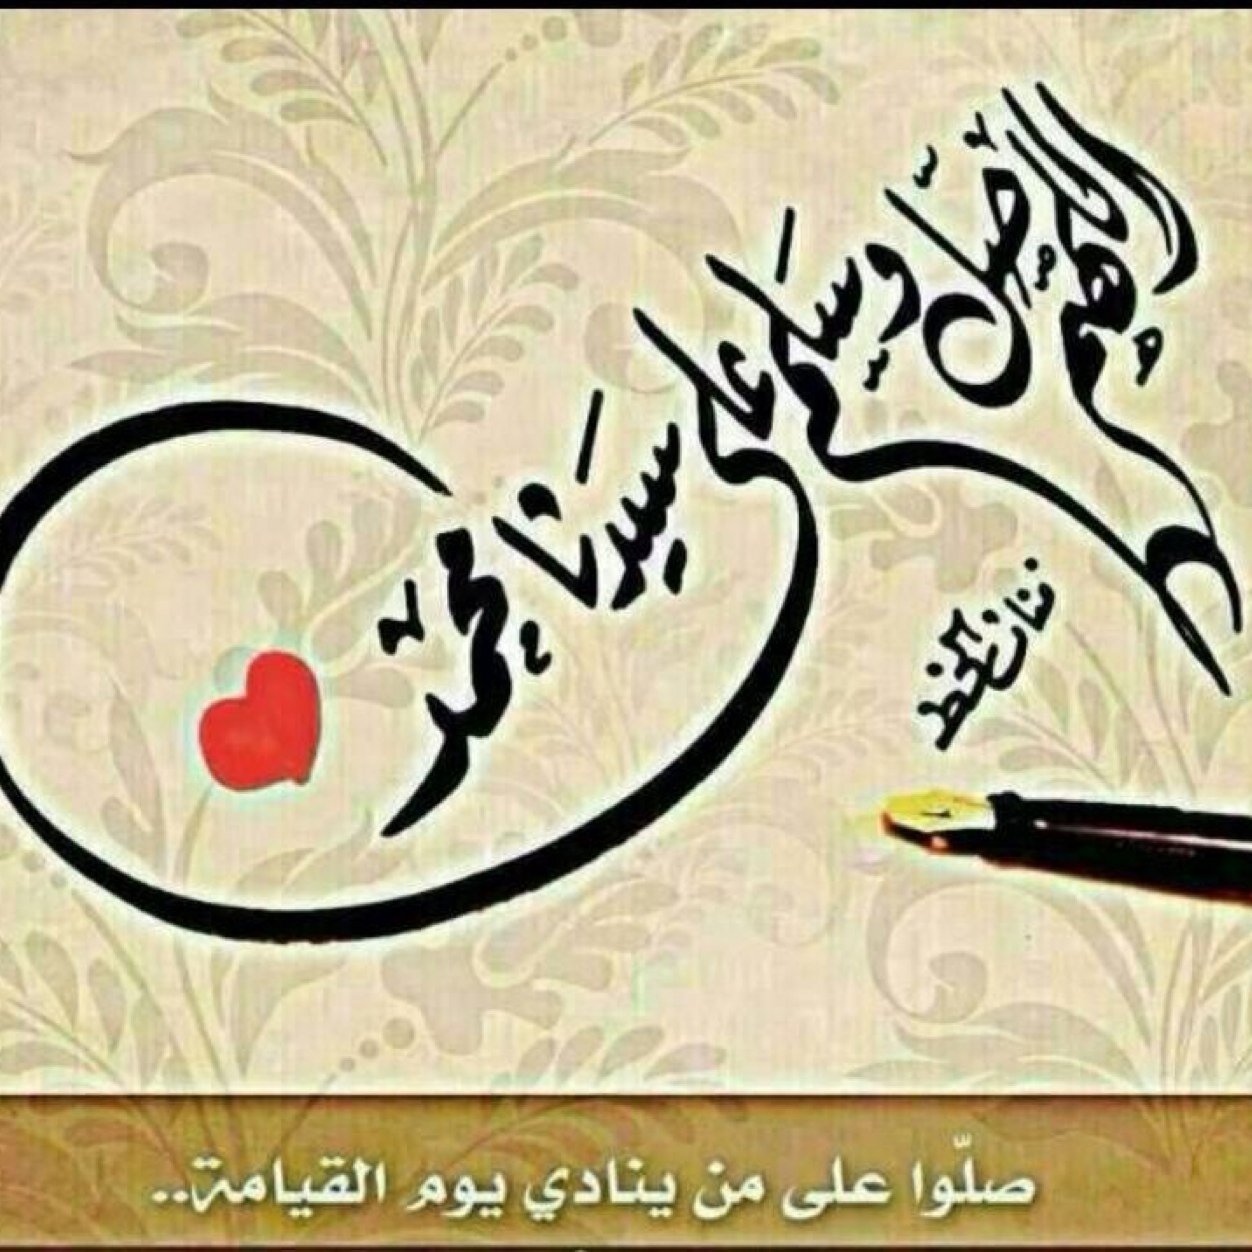 اللهم صل وسلم على سيدنا محمد
فنان الخط
صلّوا على من ينادي يوم القيامة..